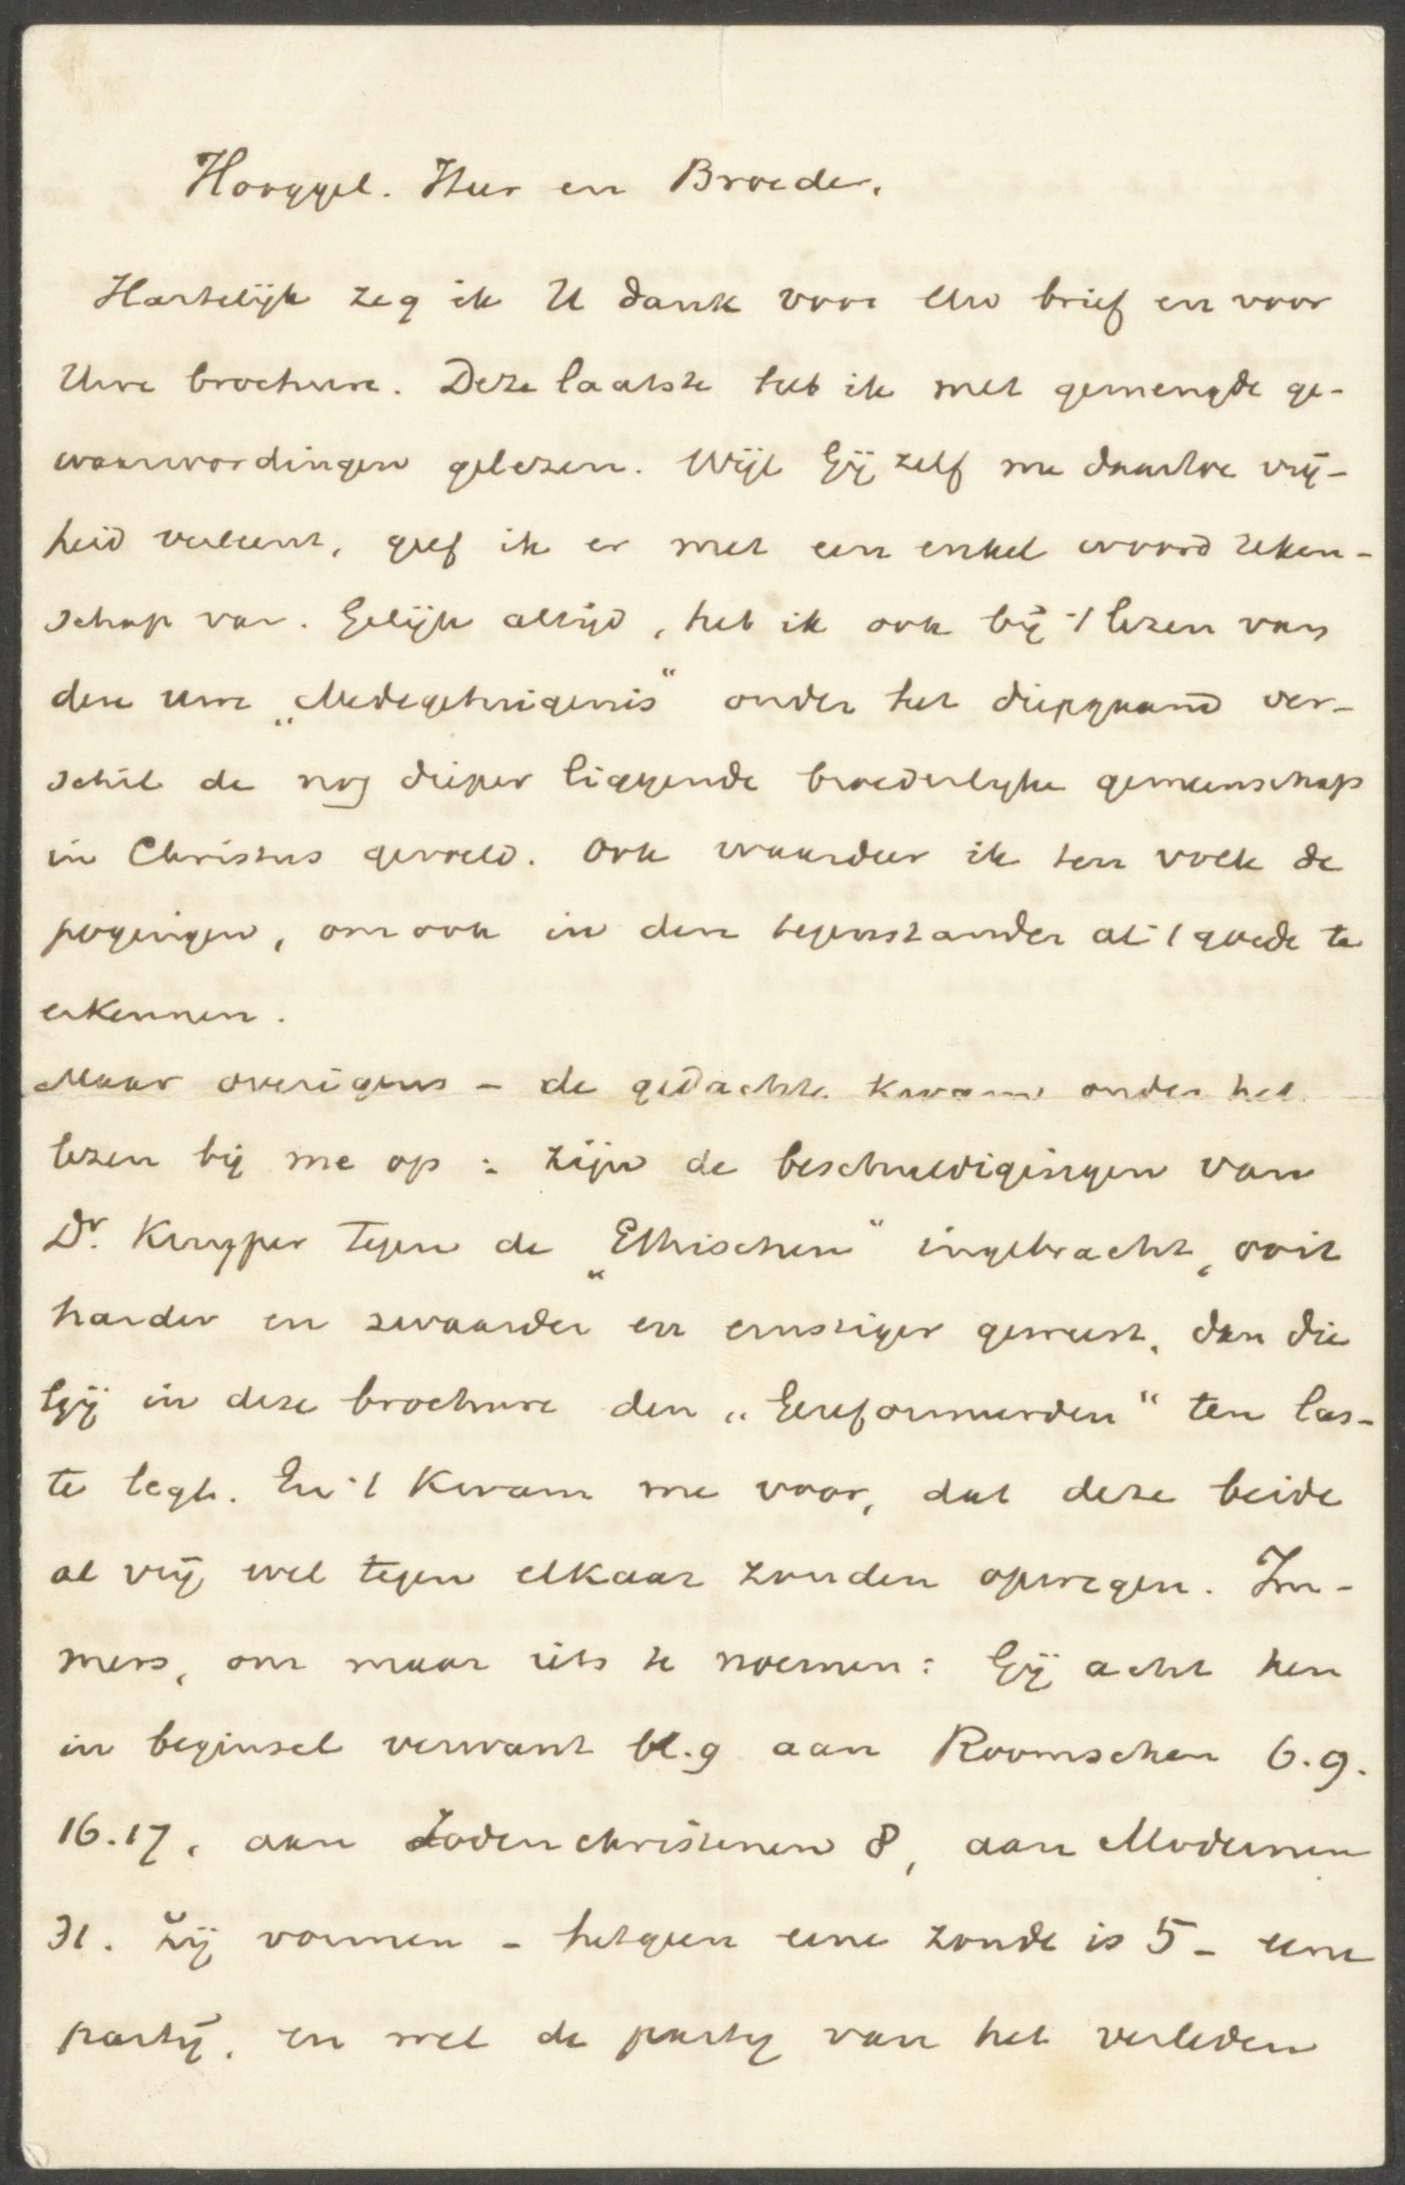 Hooggel. Heer en Broeder,
Hartelijk zeg ik U dank voor Uw brief en voor
Uwe brochure. Deze laatste heb ik met gemengde ge-
waarwordingen gelezen. Wijl Gij zelf me daartoe vrij-
heid verleent, geef ik er met een enkel woord reken-
schap van. Gelijk altijd, heb ik ook bij 't lezen van
deze Uwe „Medegetuigenis“ onder het diepgaand ver-
schil de nog dieper liggende broederlyke gemeenschap
in Christus gevoeld. Ook waardeer ik ten volle de
pogingen, om ook in den tegenstander al 't goede te
erkennen.
Maar overigens – de gedachte kwam onder het
lezen bij me op: zijn de beschuldigingen van
Dr. Kuyper tegen de „Ethischen“ ingebracht, ooit
harder en zwaarder en ernstiger geweest, dan die
Gij in deze brochure den „Gereformeerden“ ten las-
te legt. En 't kwam me voor, dat deze beide
al vrij wel tegen elkaar zouden opwegen. Im-
mers, om maar iets te noemen: Gij acht hen
in beginsel verwant bl. 9 aan Roomschen 6. 9.
16. 17, aan Jodenchristenen 8, aan Modernen
31. Zij vormen – hetgeen eene zonde is 5 – eene
partij, en wel de party van het verleden